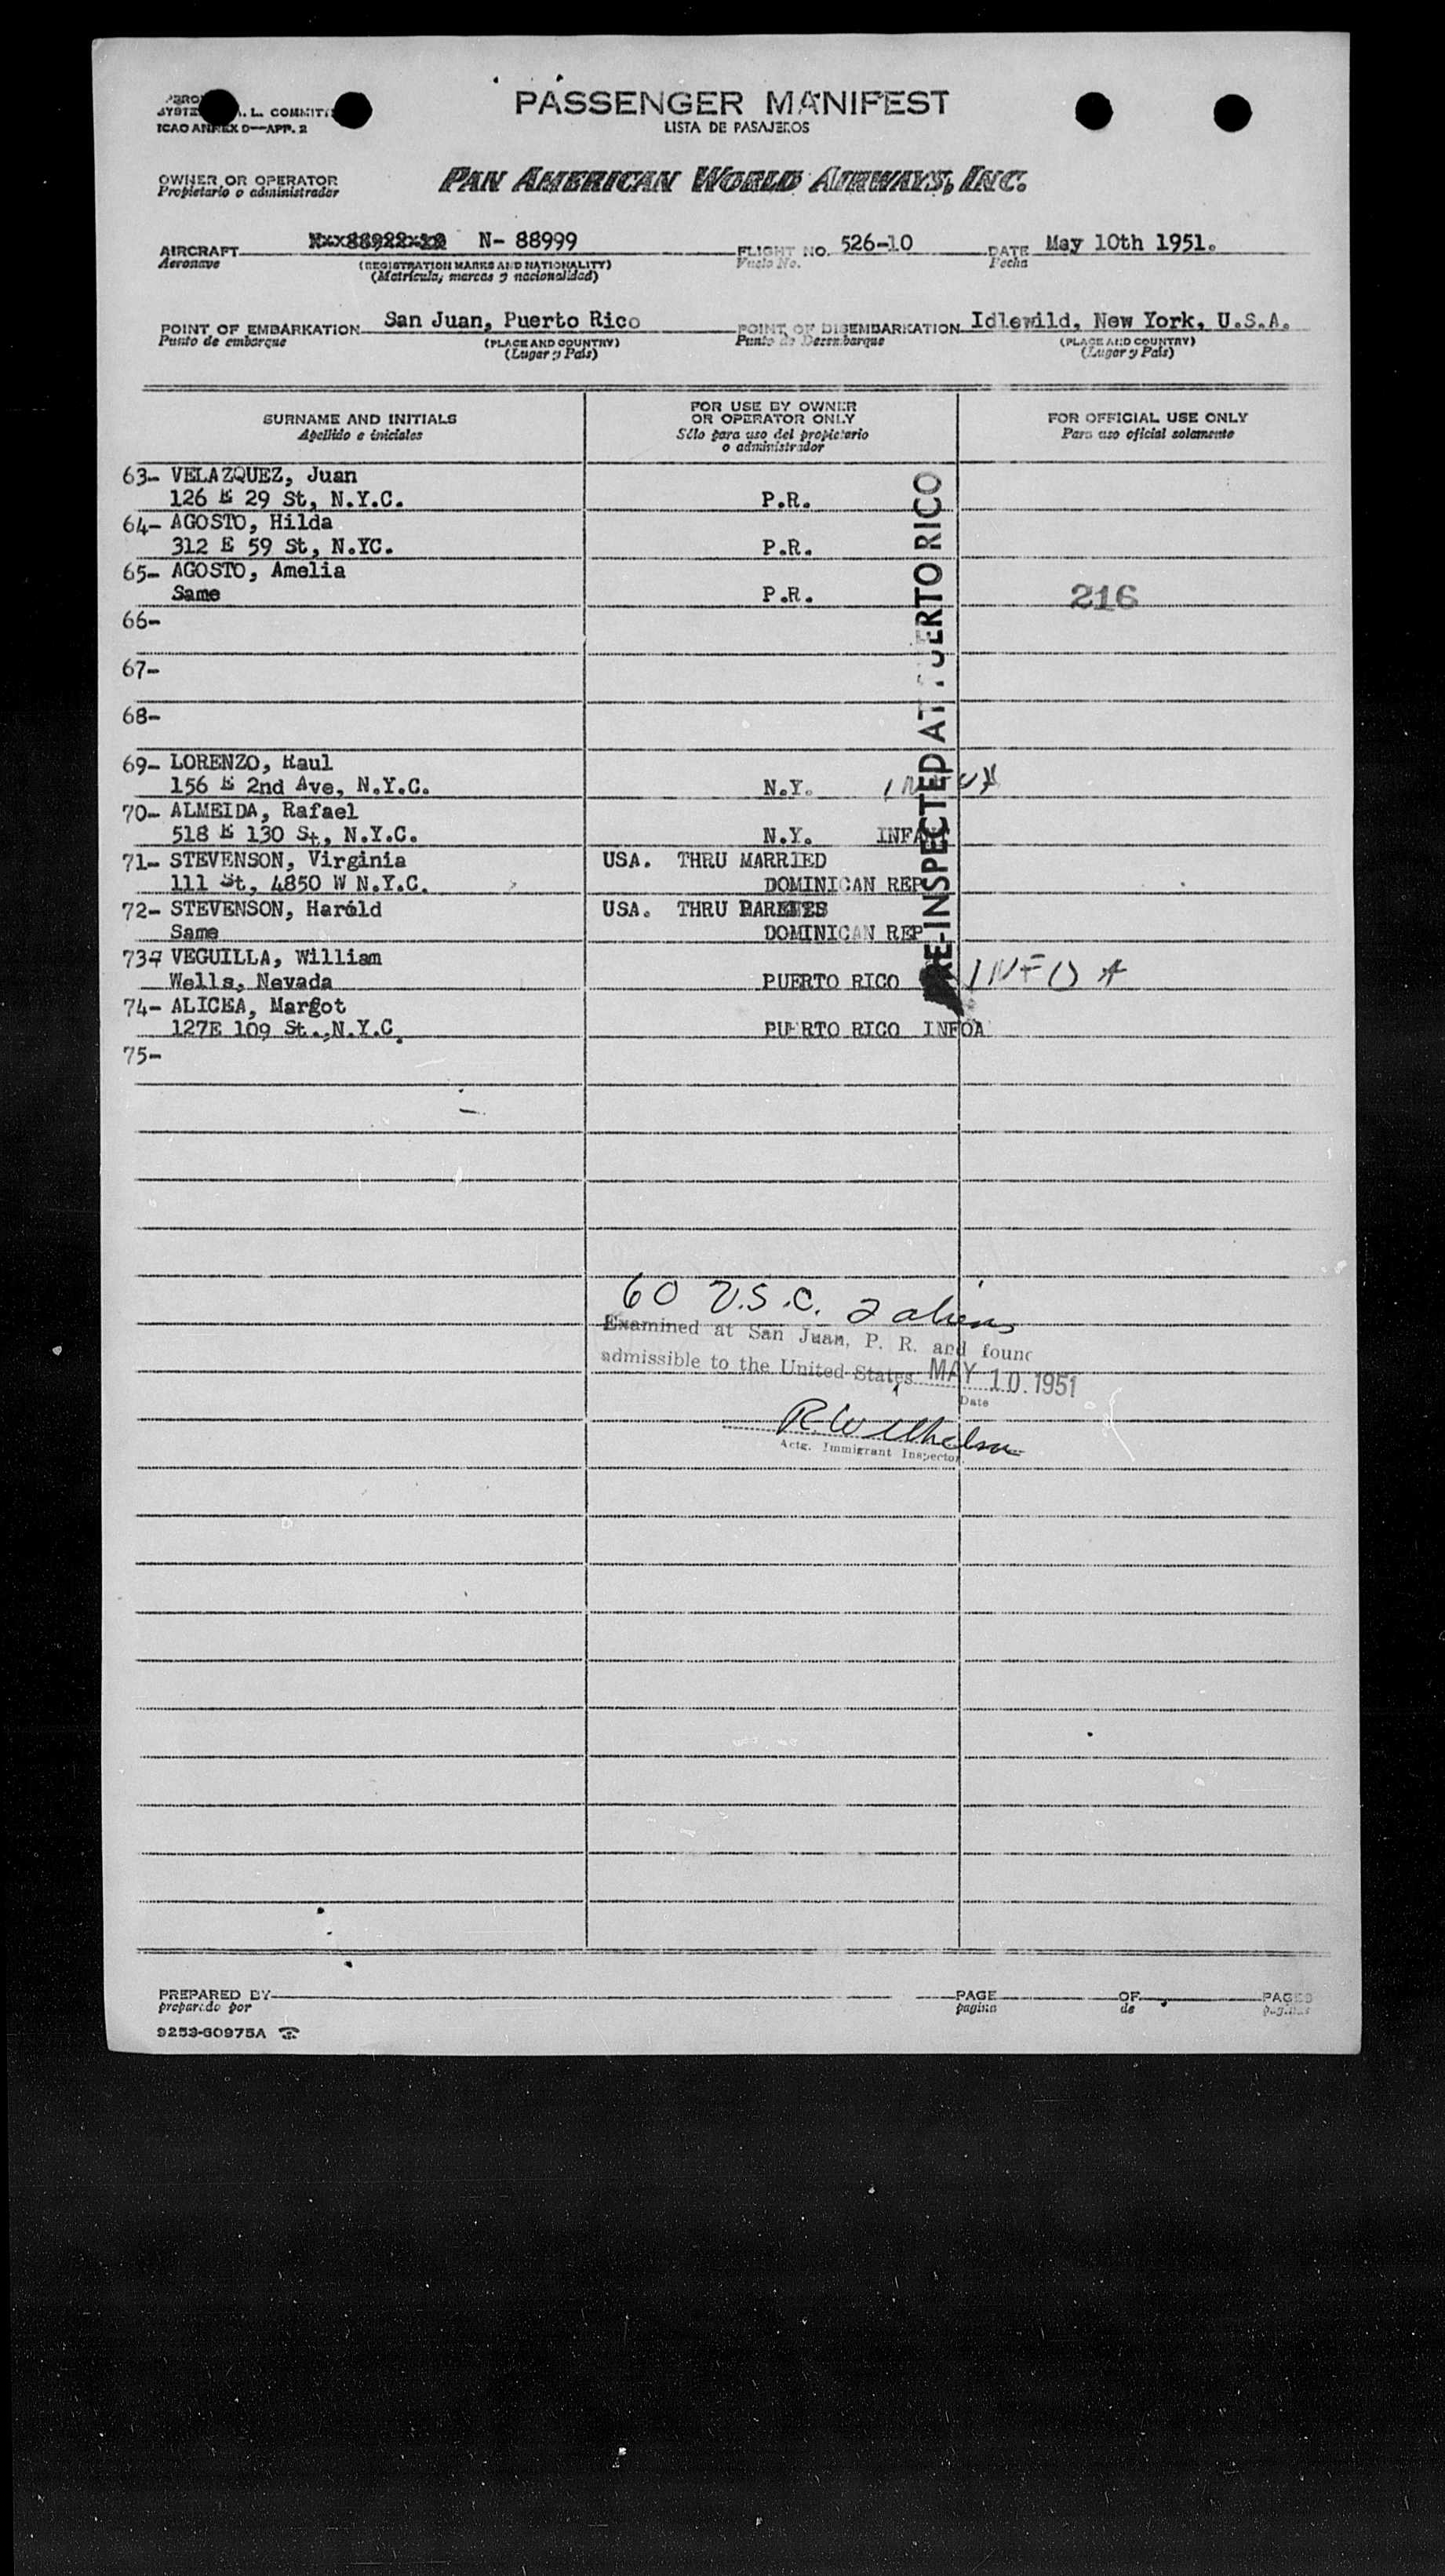 PASSENGER MANIFEST
LISTA DE PASAJEROS
ICAO ANNEX D—APP. 2
OWNER OR OPERATOR
Propietario o administrador
PAN AMERICAN WORLD AIRWAYS, INC.
AIRCRAFT N- 88999 FLIGHT NO. 526-10 DATE May 10th 1951.
Aeronave (REGISTRATION MARKS AND NATIONALITY) Vuelo No. Fecha
(Matrícula, marcas y nacionalidad)
POINT OF EMBARKATION San Juan, Puerto Rico POINT OF DISEMBARKATION Idlewild, New York, U.S.A.
Punto de embarque (PLACE AND COUNTRY) Punto de Desembarque (PLACE AND COUNTRY)
(Lugar y País) (Lugar y País)
SURNAME AND INITIALS
Apellido e iniciales
FOR USE BY OWNER
OR OPERATOR ONLY
Sólo para uso del propietario
o administrador
FOR OFFICIAL USE ONLY
Para uso oficial solamente
63- VELAZQUEZ, Juan
126 E 29 St, N.Y.C. P.R.
64- AGOSTO, Hilda
312 E 59 St, N.YC. P.R.
65- AGOSTO, Amelia
Same P.R. 216
66-
67-
68-
69- LORENZO, Raul
156 E 2nd Ave, N.Y.C. N.Y.
70- ALMEIDA, Rafael
518 E 130 St, N.Y.C. N.Y.
71- STEVENSON, Virginia USA. THRU MARRIED
111 St, 4850 W N.Y.C. DOMINICAN REP
72- STEVENSON, Harold USA. THRU PARENTS
Same DOMINICAN REP
73- VEGUILLA, William
Wells, Nevada PUERTO RICO INFOA
74- ALICEA, Margot
127E 109 St., N.Y.C. PUERTO RICO INFOA
75-
PRE-INSPECTED AT PUERTO RICO
60 U.S.C. 2 aliens
Examined at San Juan, P. R. and found
admissible to the United States MAY 10 1951
Date
Actg. Immigrant Inspector.
PREPARED BY PAGE OF PAGES
preparado por pagina de paginas
9253-60975A